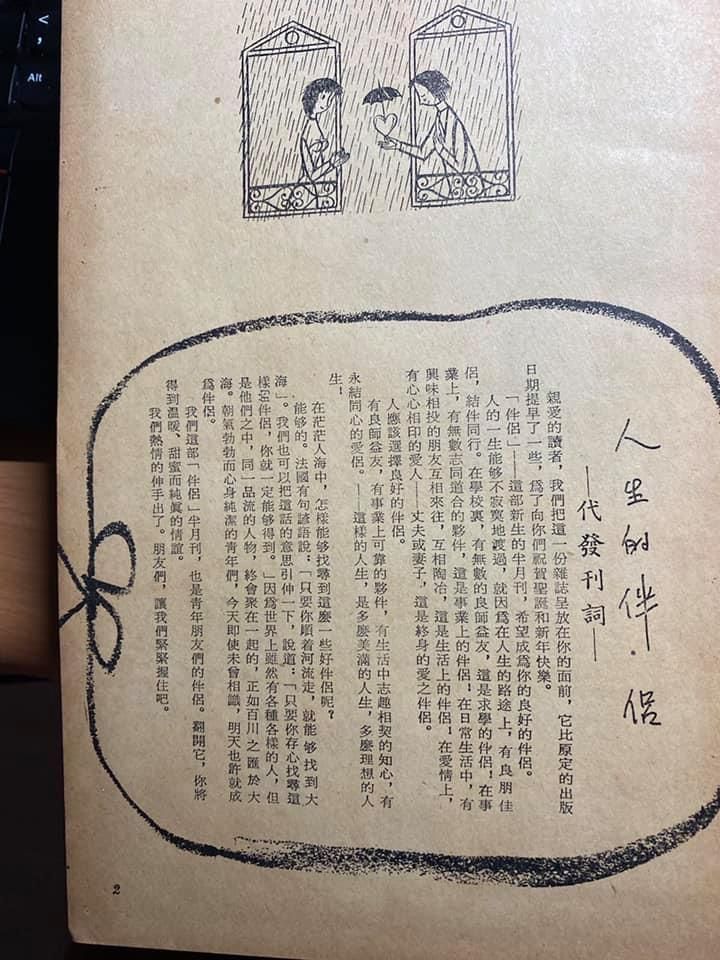 人生的伴·侶
——代發刊詞——
親愛的讀者，我們把這一份雜誌呈放在你的面前，它比原定的出版
日期提早了一些，爲了向你們祝賀聖誕和新年快樂。
「伴侶」——這部新生的半月刊，希望成爲你的良好的伴侶。
人的一生能够不寂寞地渡過，就因爲在人生的路途上，有良朋佳
侶，結伴同行。在學校裏，有無數的良師益友，這是求學的伴侶！在事
業上，有無數志同道合的夥伴，這是事業上的伴侶！在日常生活中，有
興味相投的朋友互相來往，互相陶冶，這是生活上的伴侶！在愛情上，
有心心相印的愛人——丈夫或妻子，這是終身的愛之伴侶。
人應該選擇良好的伴侶。
有良師益友，有事業上可靠的夥伴，有生活中志趣相契的知心，有
永結同心的愛侶。——這樣的人生，是多麼美滿的人生，多麼理想的人
生！
在茫茫人海中，怎樣能够找尋到這麼一些好伴侶呢？
能够的。法國有句諺語說：「只要你順着河流走，就能够找到大
海」。我們也可以把這話的意思引伸一下，說道：「只要你存心找尋這
樣的伴侶，你就一定能够得到。」因爲世界上雖然有各種各樣的人，但
是他們之中，同一品流的人物，終會聚在一起的，正如百川之匯於大
海。朝氣勃勃而心身純潔的青年們，今天即使未曾相識，明天也許就成
爲伴侶。
我們這部「伴侶」半月刊，也是青年朋友們的伴侶。翻開它，你將
得到温暖、甜蜜而純眞的情誼。
我們熱情的伸手出了。朋友們，讓我們緊緊握住吧。
2
<
,
Alt